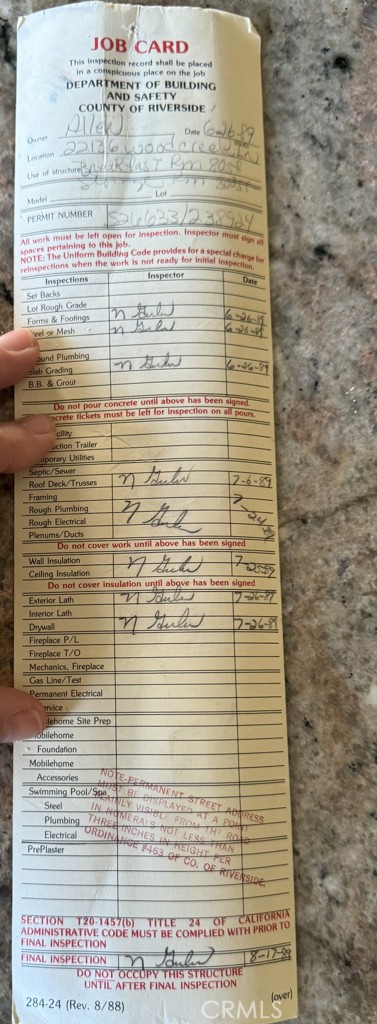 JOB CARD
This inspection record shall be placed
in a conspicuous place on the job
DEPARTMENT OF BUILDING
AND SAFETY
COUNTY OF RIVERSIDE
Owner Allen Date 6-26-89
Location 22136 woodcreek
Use of structure Breakfast Rm
Rm
Model Lot
PERMIT NUMBER 526633/238934
All work must be left open for inspection. Inspector must sign all
spaces pertaining to this job.
NOTE: The Uniform Building Code provides for a special charge for
reinspections when the work is not ready for initial inspection.
Inspections Inspector Date
Set Backs
Lot Rough Grade
Forms & Footings 6-26-89
eel or Mesh 6-26-89
ound Plumbing
Slab Grading 6-26-89
B.B. & Grout
Do not pour concrete until above has been signed.
crete tickets must be left for inspection on all pours.
cility
uction Trailer
porary Utilities
Septic/Sewer
Roof Deck/Trusses 7-6-89
Framing
Rough Plumbing 7-24-89
Rough Electrical
Plenums/Ducts
Do not cover work until above has been signed
Wall Insulation 7-25-89
Ceiling Insulation
Do not cover insulation until above has been signed
Exterior Lath 7-26-89
Interior Lath
Drywall 7-26-89
Fireplace P/L
Fireplace T/O
Mechanics, Fireplace
Gas Line/Test
Permanent Electrical
ervice
ilehome Site Prep
obilehome
Foundation
Mobilehome
Accessories
Swimming Pool/Spa
Steel
Plumbing
Electrical
PrePlaster
NOTE-PERMANENT STREET ADDRESS
MUST BE DISPLAYED AT A POINT
PLAINLY VISIBLE FROM THE ROAD
IN NUMERALS NOT LESS THAN
THREE INCHES IN HEIGHT PER
ORDINANCE #463 OF CO. OF RIVERSIDE
SECTION T20-1457(b) TITLE 24 OF CALIFORNIA
ADMINISTRATIVE CODE MUST BE COMPLIED WITH PRIOR TO
FINAL INSPECTION
FINAL INSPECTION 8-17-89
DO NOT OCCUPY THIS STRUCTURE
UNTIL AFTER FINAL INSPECTION
284-24 (Rev. 8/88) (over)
CRMLS